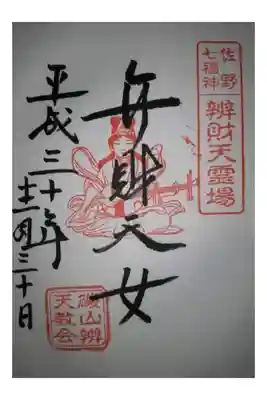 佐野
七福神
辨財天霊場
弁財天女
平成三十年
十一月三十日
磯山辨
天教会